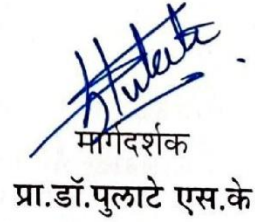 मार्गदर्शक
प्रा.डॉ.पुलाटे एस.के